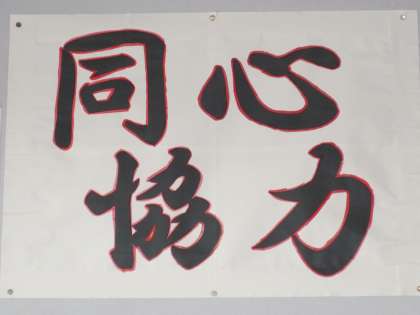 同心
協力